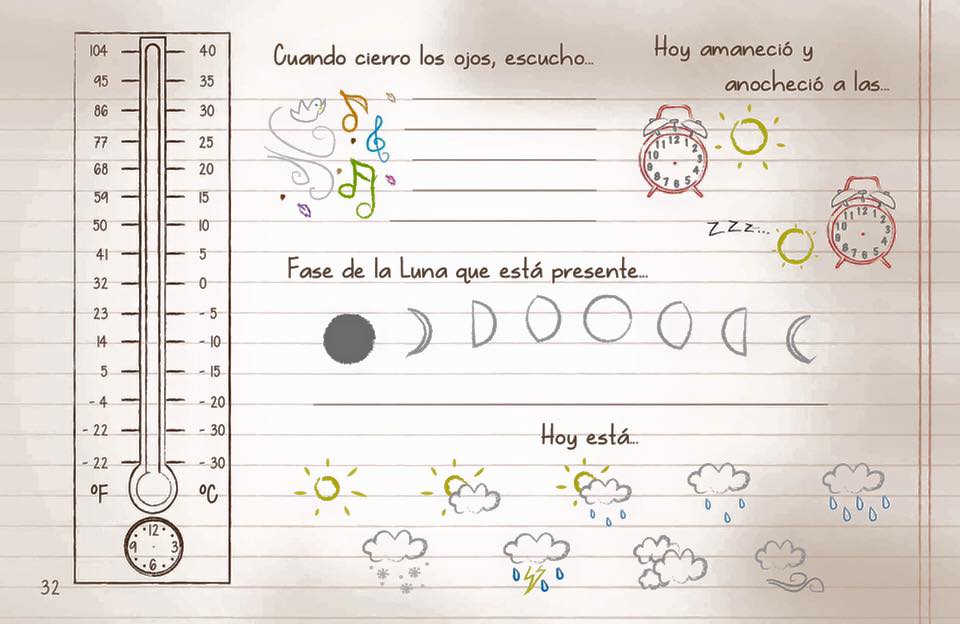 104 40
95 35
86 30
77 25
68 20
59 15
50 10
41 5
32 0
23 - 5
14 - 10
5 - 15
- 4 - 20
- 22 - 30
- 22 - 30
ºF ºC
12
9 3
6
32
Cuando cierro los ojos, escucho...
Hoy amaneció y
anocheció a las...
12
11 1
10 2
9 3
8 4
7 6 5
zzz...
12
11 1
10 2
9 3
8 4
7 6 5
Fase de la Luna que está presente...
Hoy está...